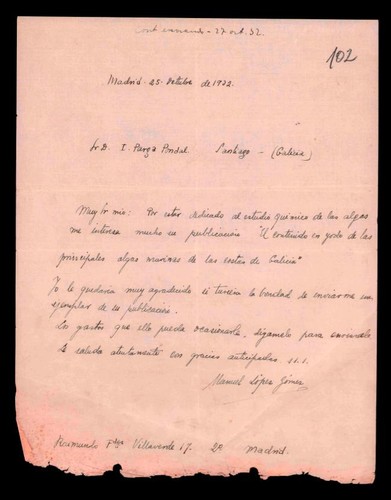 27 oct. 32.
102
Madrid - 25 - Octubre de 1932.
Sr D. I. Parga Pondal Santiago - (Galicia)
Muy Sr mio: Por estar dedicado al estudio químico de las algas
me interesa mucho su publicación "El contenido en yodo de las
principales algas marinas de las costas de Galicia"
Yo le quedaria muy agradecido si tuviera la bondad de enviarme un
ejemplar de su publicacion.
Los gastos que ello pueda ocasionarle, digamelo para enviarselo.
Le saluda atentamente con gracias anticipadas s.s.
Manuel López Gómez
Raimundo Fdez Villaverde 17. 2º Madrid.